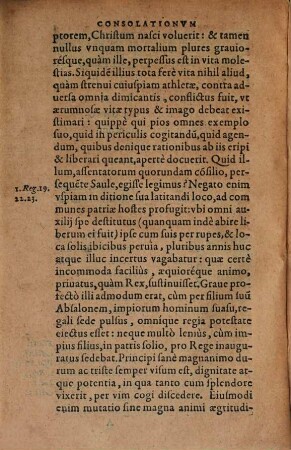 CONSOLATIONVM
ptorem, Christum nasci voluerit: & tamen
nullus vnquam mortalium plures grauio-
résque, quàm ille, perpessus est in vita mole-
stias. Siquidẽ illius tota ferè vita nihil aliud,
quàm strenui cuiuspiam athletæ, contra ad-
uersa omnia dimicantis, conflictus fuit, vt
ærumnosæ vitæ typus & imago debeat exi-
stimari: quippè qui pios omnes exemplo
suo, quid in periculis cogitandũ, quid agen-
dum, quibus denique rationibus ab iis eripi
& liberari queant, apertè docuerit. Quid il-
lum, assentatorum quorundam cõsilio, per-
sequẽte Saule, egisse legimus? Negato enim
1. Reg. 19.
vspiam in ditione sua latitandi loco, ad com
22.23.
munes patriæ hostes profugit: vbi omni au-
xilij spe destitutus (quanquam indè abire libe-
rum ei fuit) ipse cum suis per rupes, & lo-
ca solis ibicibus peruia, pluribus annis huc
atque illuc incertus vagabatur: quæ certè
incommoda faciliùs, æquioréque animo,
priuatus, quàm Rex, sustinuisset. Graue pro-
fectò illi admodum erat, cùm per filium suũ
Absalonem, impiorum hominum suasu, re-
gali sede pulsus, omnique regia potestate
eiectus esset: neque multò leniùs, cùm im-
pius filius, in patris solio, pro Rege inaugu-
ratus sedebat. Principi sanè magnanimo du-
rum ac triste semper visum est, dignitate at-
que potentia, in qua tanto cum splendore
vixerit, per vim cogi discedere. Eiusmodi
enim mutatio sine magna animi ægritudi-